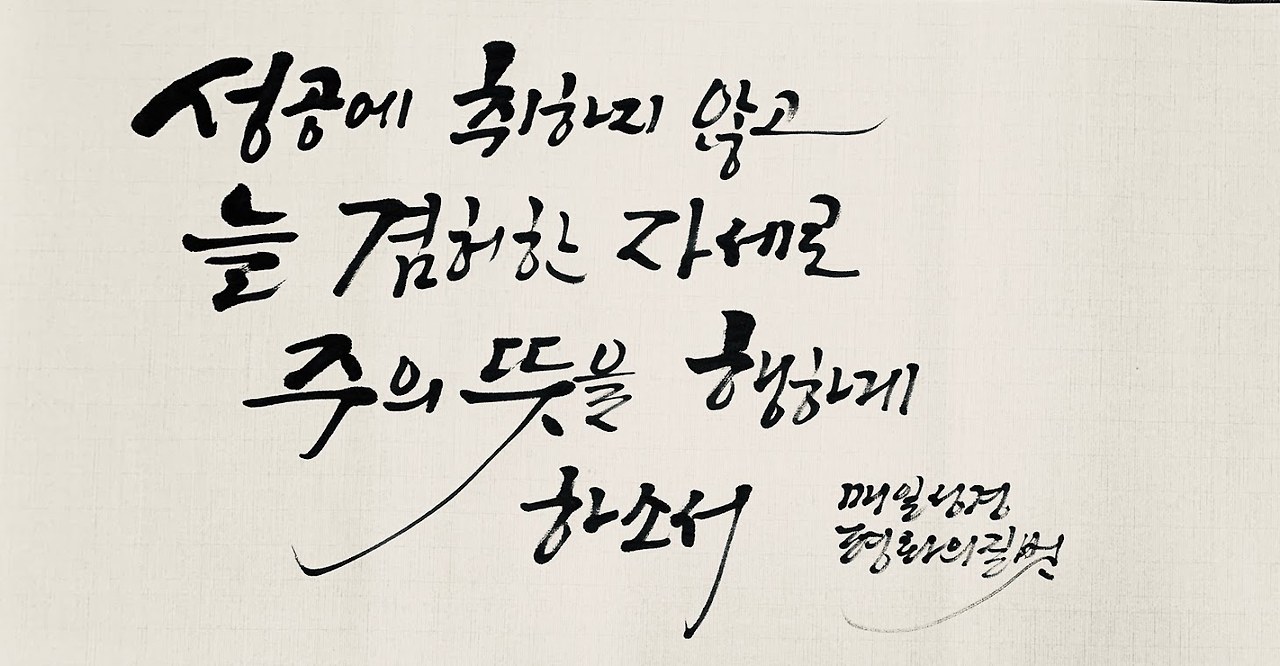 성공에 취하지 않고
늘 겸허한 자세로
주의 뜻을 행하게
하소서
매일성경
평화의길벗